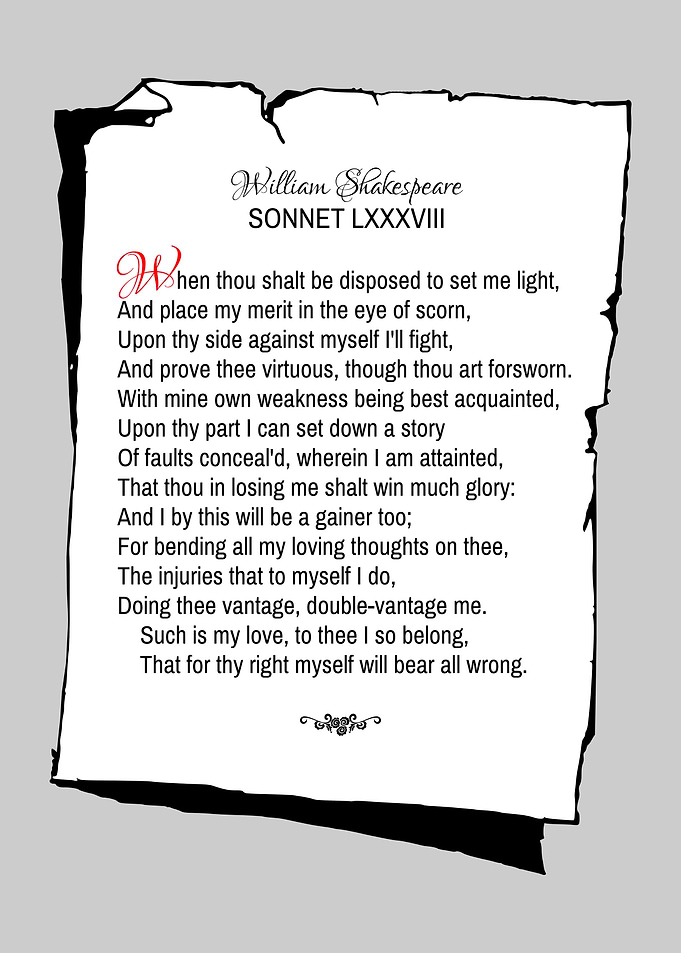 William Shakespeare
SONNET LXXXVIII
When thou shalt be disposed to set me light,
And place my merit in the eye of scorn,
Upon thy side against myself I'll fight,
And prove thee virtuous, though thou art forsworn.
With mine own weakness being best acquainted,
Upon thy part I can set down a story
Of faults conceal'd, wherein I am attainted,
That thou in losing me shalt win much glory:
And I by this will be a gainer too;
For bending all my loving thoughts on thee,
The injuries that to myself I do,
Doing thee vantage, double-vantage me.
Such is my love, to thee I so belong,
That for thy right myself will bear all wrong.